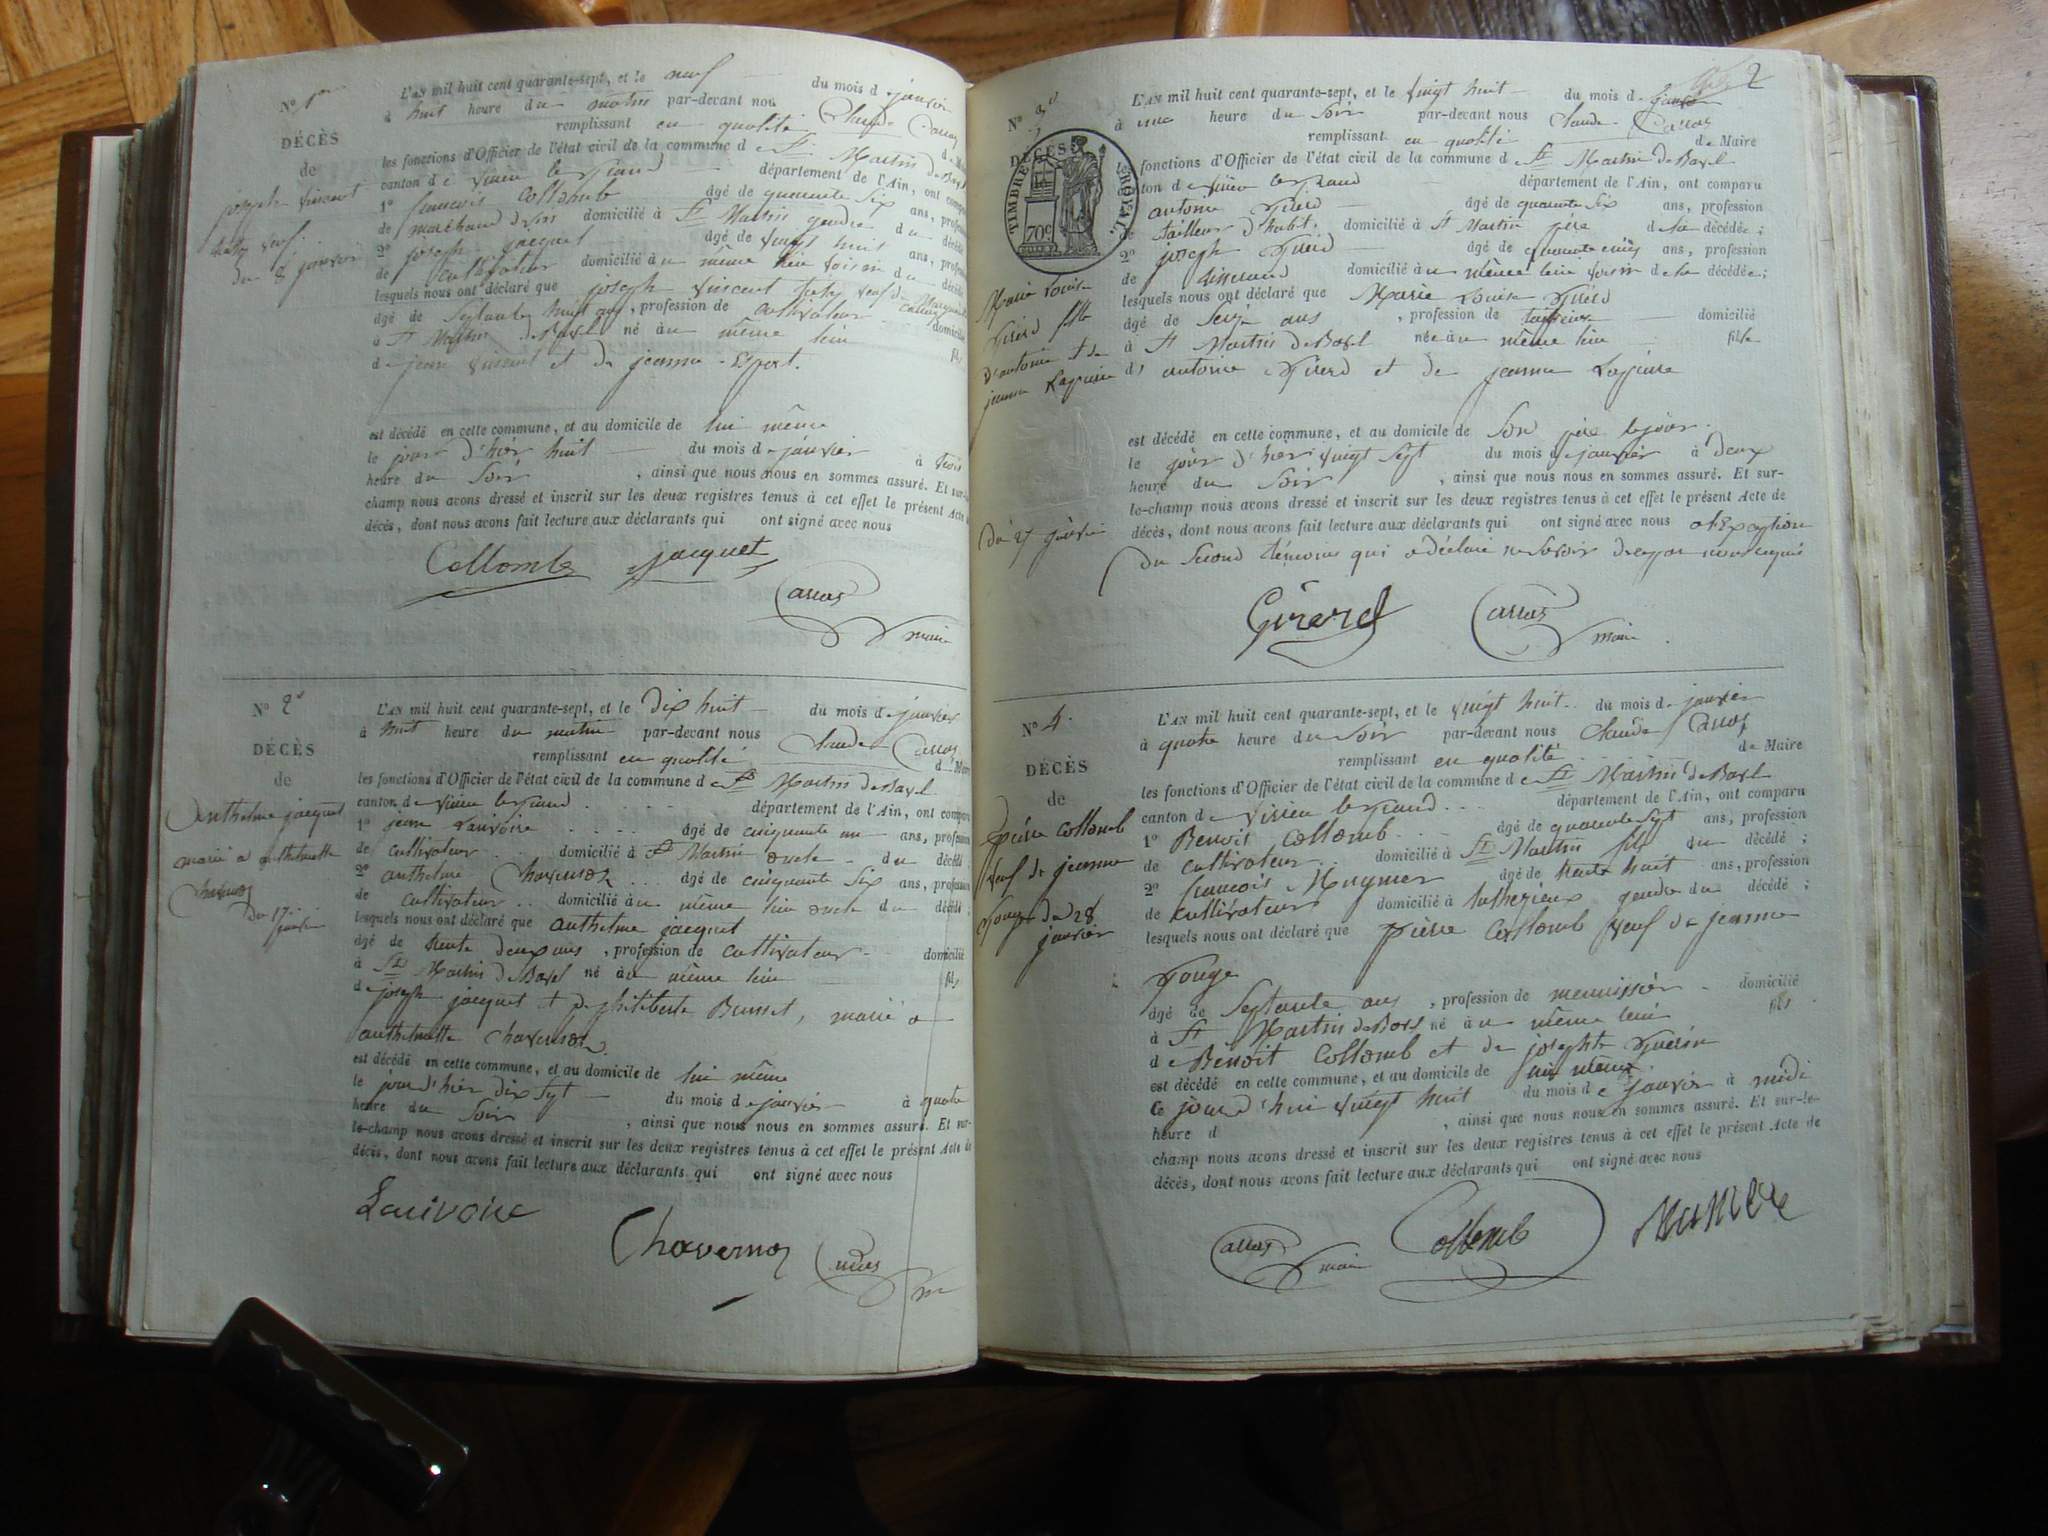 N° 1er
DÉCÈS
de
joseph vincent
du 8 janvier
L'AN mil huit cent quarante-sept, et le neuf du mois de janvier
à huit heure du matin par-devant nou Claude Carros
remplissant en qualité de M
les fonctions d'Officier de l'état civil de la commune de St Martin de Bavel
canton de Virieu le grand département de l'Ain, ont compa
1° françois Collomb âgé de quarante six ans, profe
de marchand de vin domicilié à St Martin gendre du décédé
2° joseph jacquet âgé de vingt huit ans, profe
de cultivateur domicilié à u même lieu voisin du décédé
lesquels nous ont déclaré que joseph vincent veuf de
âgé de septante huit ans, profession de cultivateur domicilié
à St Martin de Bavel né à u même lieu fils
de jean vincent et de jeanne
est décédé en cette commune, et au domicile de lui même
le jour d'hier huit du mois de janvier à trois
heure du soir, ainsi que nous nous en sommes assuré. Et sur-le-
champ nous avons dressé et inscrit sur les deux registres tenus à cet effet le présent Acte
décès, dont nous avons fait lecture aux déclarants qui ont signé avec nous
Collomb jacquet
Carros
maire
N° 2e
DÉCÈS
de
Anthelme jacquet
marié a anthelmette
Chavernoz
du 17
janvier
L'AN mil huit cent quarante-sept, et le dix huit du mois de janvier
à huit heure du matin par-devant nous Claude Carros
remplissant en qualité de Maire
les fonctions d'Officier de l'état civil de la commune de St Martin de Bavel
canton de Virieu le grand département de l'Ain, ont comparu
1° jean Larivoire âgé de cinquante un ans, profession
de cultivateur domicilié à St Martin oncle du décédé
2° anthelme Chavernoz âgé de cinquante six ans, profession
de cultivateur domicilié à u même lieu oncle du décédé
lesquels nous ont déclaré que anthelme jacquet
âgé de trente deux ans, profession de cultivateur domicilié
à St Martin de Bavel né à u même lieu fils
de joseph jacquet et de philiberte Brunet, marié a
anthelmette Chavernoz
est décédé en cette commune, et au domicile de lui même
le jour d'hier dix sept du mois de janvier à quatre
heure du soir, ainsi que nous nous en sommes assuré. Et sur-
le-champ nous avons dressé et inscrit sur les deux registres tenus à cet effet le présent Acte de
décès, dont nous avons fait lecture aux déclarants qui ont signé avec nous
Larivoire
Chavernoz Carros
m
2
N° 3e
DÉCÈS
TIMBRE ROYAL.
70c
Marie Louise
Girerd fille
d'antoine et de
jeanne Lapierre
du 27 janvier
L'AN mil huit cent quarante-sept, et le vingt huit du mois de janvier
à une heure du soir par-devant nous Claude Carros
remplissant en qualité de Maire
fonctions d'Officier de l'état civil de la commune de St Martin de Bavel
ton de Virieu le grand département de l'Ain, ont comparu
antoine Girerd âgé de quarante six ans, profession
de tailleur d'habit. domicilié à St Martin père de la décédée;
2° joseph Girerd âgé de quarante cinq ans, profession
de tisserand domicilié à u même lieu voisin de la décédée;
lesquels nous ont déclaré que Marie Louise Girerd
âgé de seize ans, profession de domicilié
à St Martin de Bavel née à u même lieu fille
d' antoine Girerd et de jeanne Lapierre
est décédé en cette commune, et au domicile de son père le jour
le jour d'hier vingt sept du mois de janvier à deux
heure du soir, ainsi que nous nous en sommes assuré. Et sur-
le-champ nous avons dressé et inscrit sur les deux registres tenus à cet effet le présent Acte de
décès, dont nous avons fait lecture aux déclarants qui ont signé avec nous a l'Exception
du second témoins qui a déclaré ne savoir de ce par nous requis
Girerd Carros
maire
N° 4.
DÉCÈS
de
pierre Collomb
veuf de jeanne
Gouge du 28
janvier
L'AN mil huit cent quarante-sept, et le vingt huit du mois de janvier
à quatre heure du soir par-devant nous Claude Carros
remplissant en qualité de Maire
les fonctions d'Officier de l'état civil de la commune de St Martin de Bavel
canton de Virieu le grand département de l'Ain, ont comparu
1° Benoit Collomb âgé de quarante sept ans, profession
de cultivateur domicilié à St Martin fils du décédé;
2° françois âgé de trente huit ans, profession
de cultivateur domicilié à gendre du décédé;
lesquels nous ont déclaré que pierre Collomb veuf de jeanne
Gouge
âgé de septante ans, profession de menuisier domicilié
à St Martin de Bavel né à u même lieu fils
de Benoit Collomb et de josephte Guerin
est décédé en cette commune, et au domicile de lui même
ce jourd'hui vingt huit du mois de janvier à midi
heure d, ainsi que nous nous en sommes assuré. Et sur-le-
champ nous avons dressé et inscrit sur les deux registres tenus à cet effet le présent Acte de
décès, dont nous avons fait lecture aux déclarants qui ont signé avec nous
Carros
maire Collomb